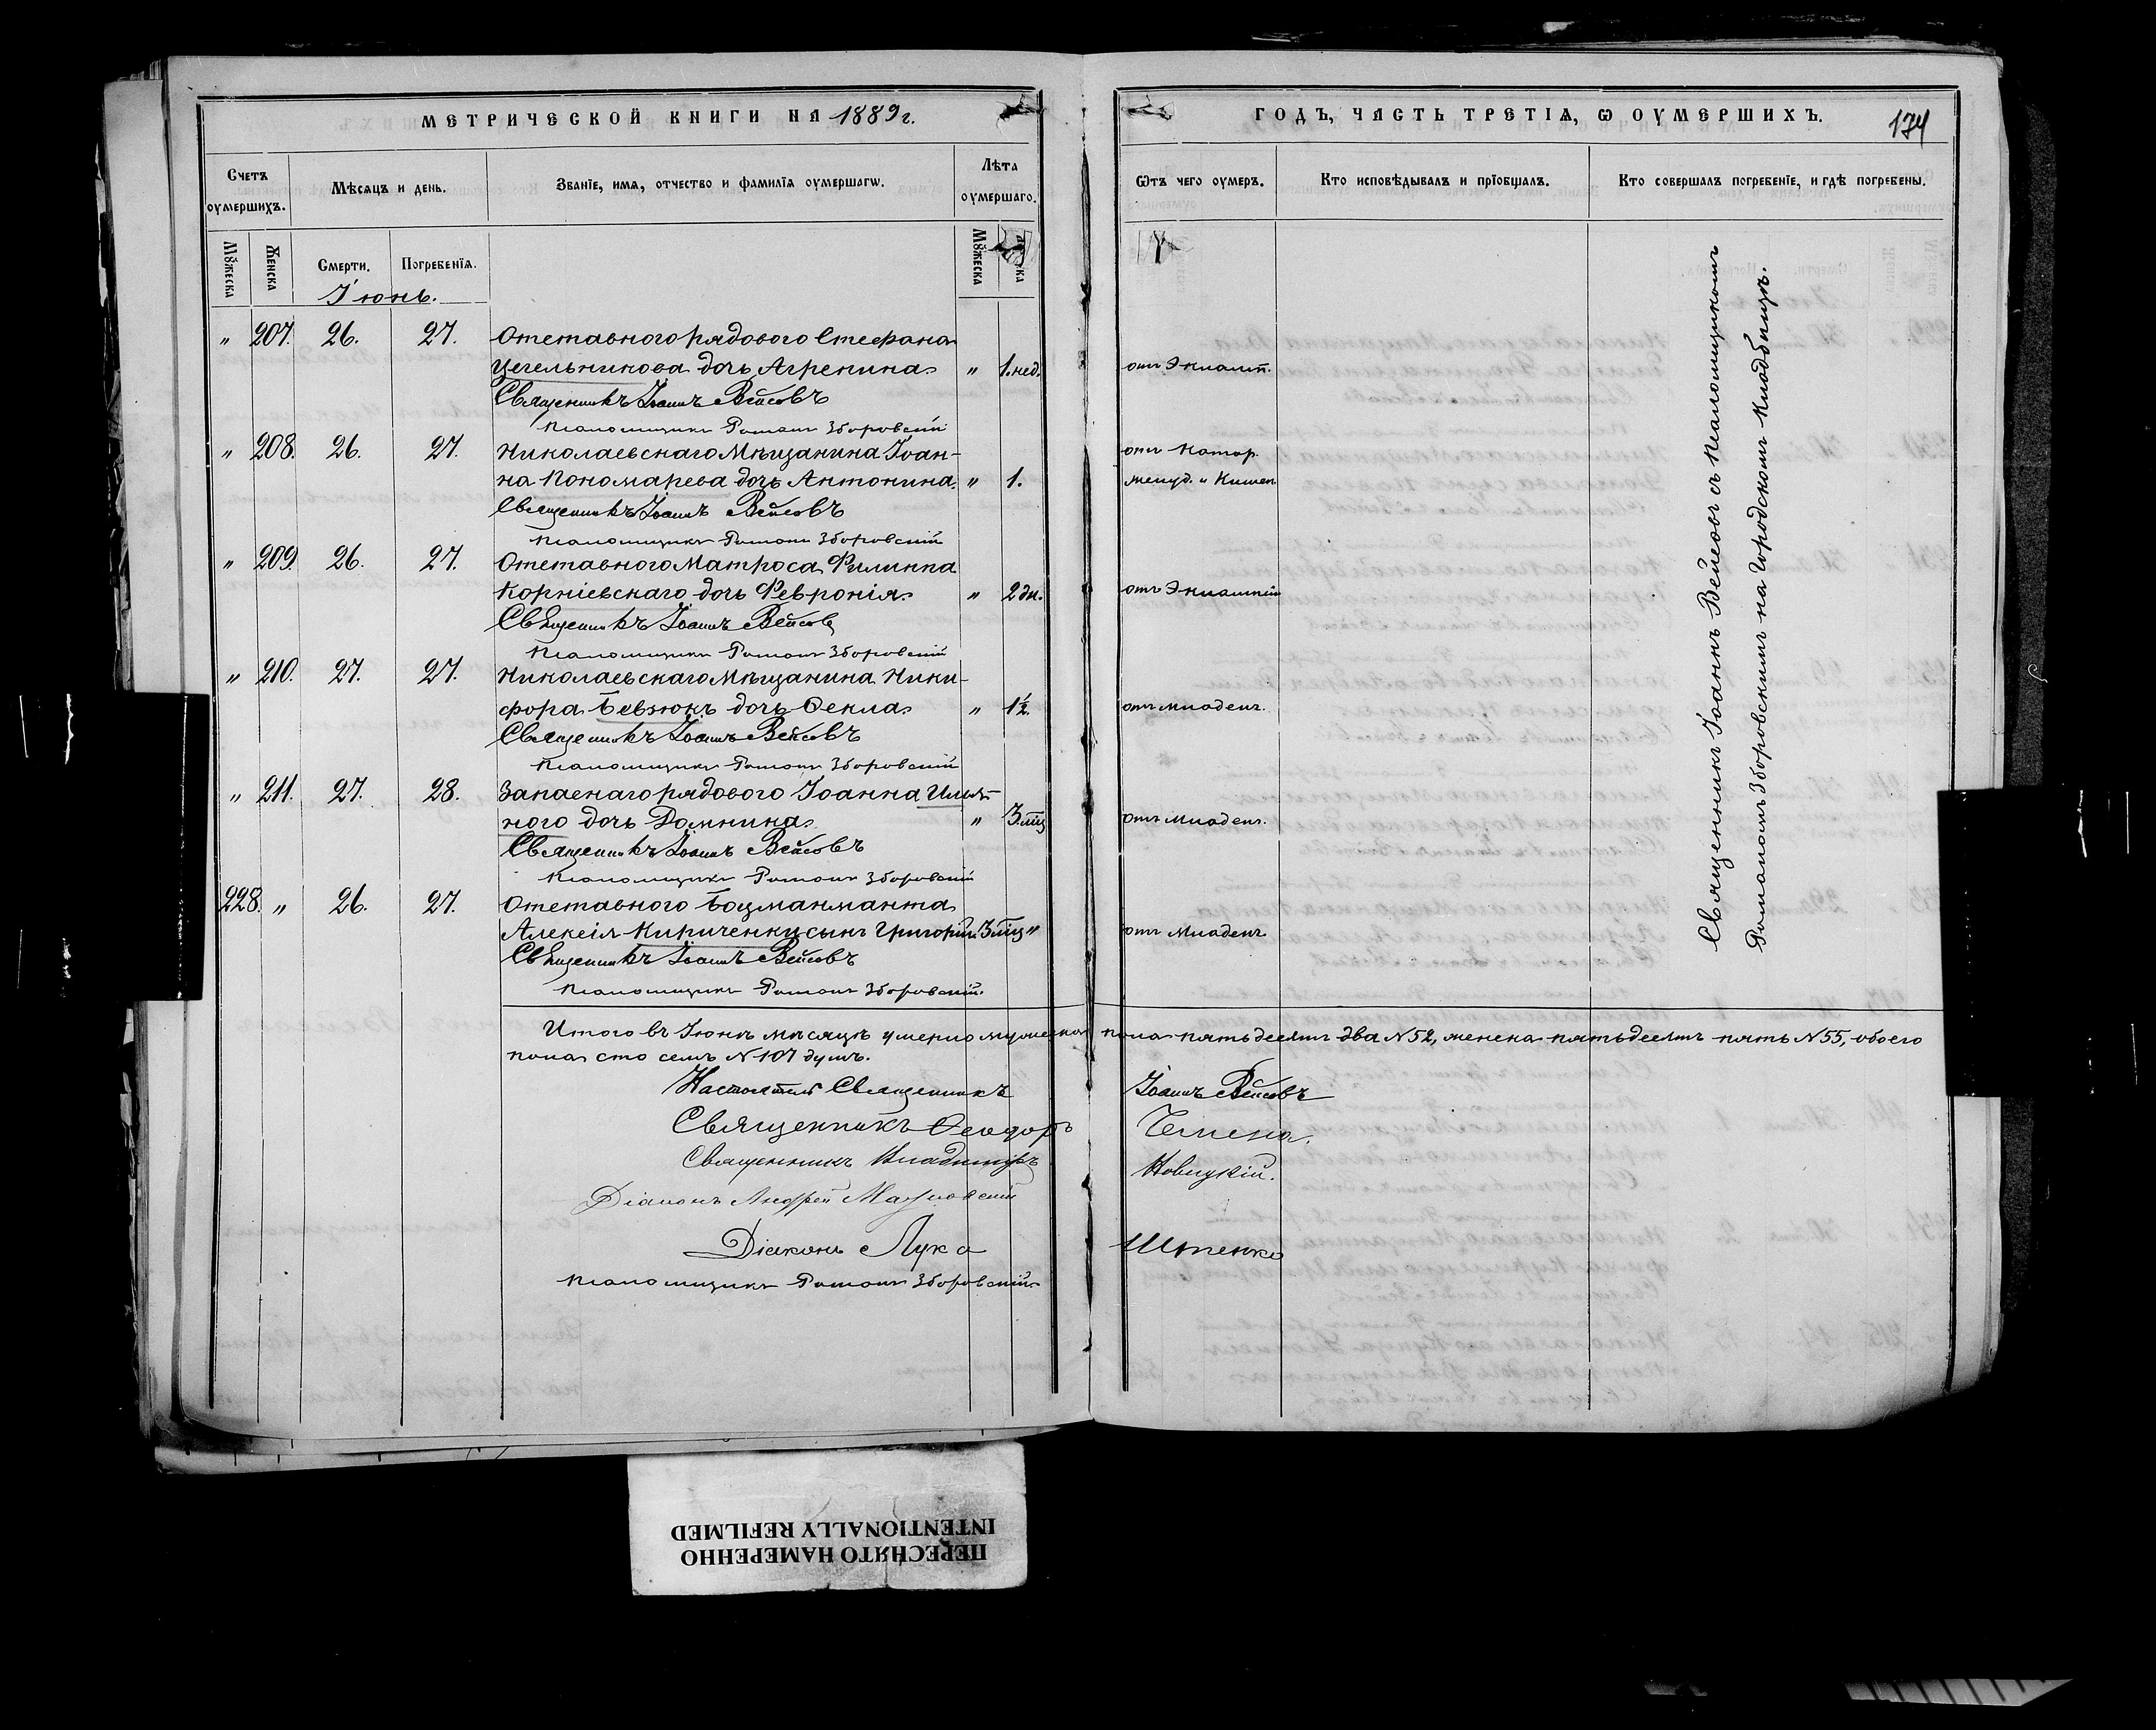 МЕТРИЧЕСКОЙ КНИГИ НА 1889 г.
Счетъ оумершихъ.
Мѣсяцъ и день.
Званіе, имя, отчество и фамилія оумершагѡ.
Лѣта оумершаго.
Мꙋжеска
Женска
Смерти.
Погребенія.
Мꙋжеска
Іюнь.
" 207. 26. 27. Отставного рядового Стефана
Цегельникова дочь Агрепина " 1. нед.
Священникъ Іоаннъ Вейсовъ
Псаломщикъ Романъ Зборовскій
" 208. 26. 27. Николаевскаго Мѣщанина Іоан-
на Пономарева дочь Антонина. " 1.
Священникъ Іоаннъ Вейсовъ
Псаломщикъ Романъ Зборовскій
" 209. 26. 27. Отставного Матроса Филиппа
Корніевскаго дочь Февронія. " 2 дн.
Священникъ Іоаннъ Вейсовъ
Псаломщикъ Романъ Зборовскій
" 210. 27. 27. Николаевскаго Мѣщанина Ники-
фора Бевзюкъ дочь Ѳекла. " 1½.
Священникъ Іоаннъ Вейсовъ
Псаломщикъ Романъ Зборовскій
" 211. 27. 28. Запаснаго рядового Іоанна
ного дочь Домнина. " 3 мц
Священникъ Іоаннъ Вейсовъ
Псаломщикъ Романъ Зборовскій
228. " 26. 27. Отставного Боцманманта
Алексія Кириченки сынъ Григорій. 3 мц "
Священникъ Іоаннъ Вейсовъ
Псаломщикъ Романъ Зборовскій.
ГОДЪ, ЧАСТЬ ТРЕТІЯ, Ѡ ОУМЕРШИХЪ.
174
Ѿтъ чего оумеръ.
Кто исповѣдывалъ и пріобщалъ.
Кто совершалъ погребеніе, и гдѣ погребены.
отъ Эклампт.
отъ Катар.
желуд. и Кишеч.
отъ Эклампсіи
отъ младенч.
отъ младенч.
отъ младенч.
Священникъ Іоаннъ Вейсовъ съ псаломщикомъ
Романомъ Зборовскимъ на Городскомъ кладбищѣ.
Итого въ Іюнѣ мѣсяцѣ умерло мужеска пола пятьдесятъ два № 52, женска пятьдесятъ пять № 55, обоего
пола сто семь № 107 душъ.
Настоятель Священникъ Іоаннъ Вейсовъ
Священникъ Ѳеодоръ Чемена.
Священникъ Владиміръ Новицкій.
Діаконъ Андрей
Діаконъ Лука Штенко
Псаломщикъ Романъ Зборовскій
ПЕРЕСНЯТО НАМЕРЕННО
INTENTIONALLY REFILMED